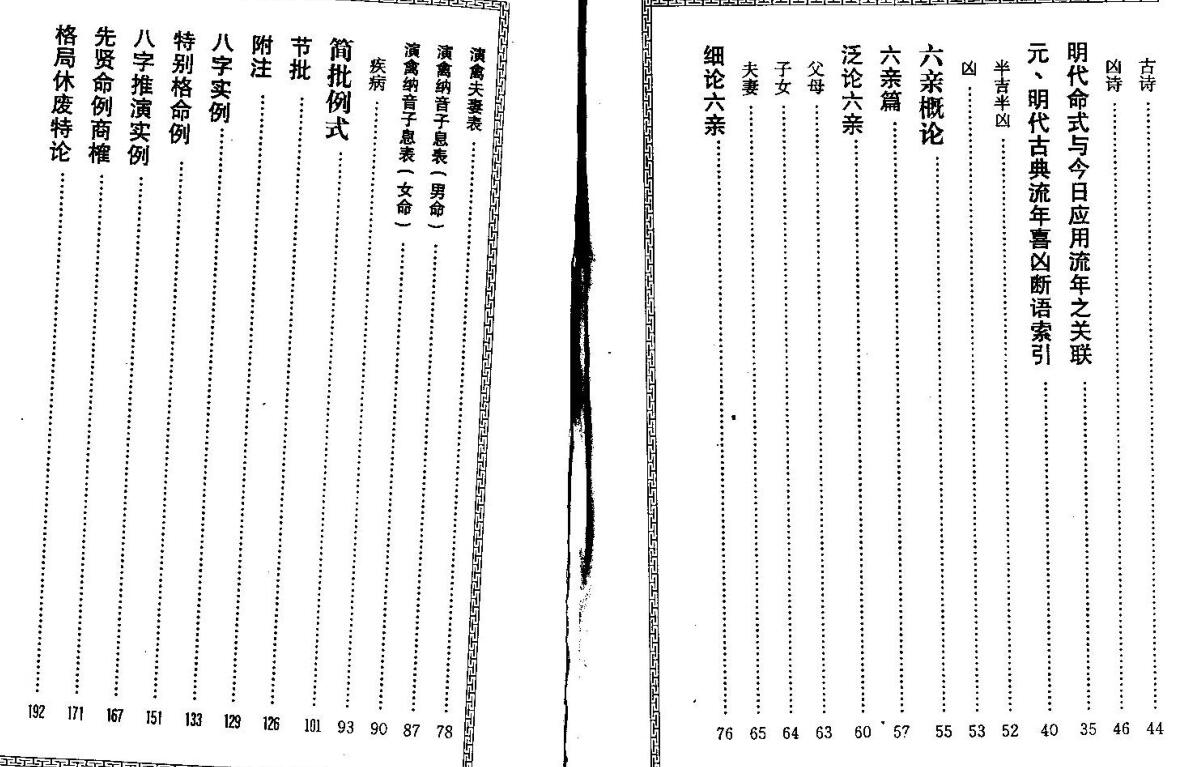 古诗……44
凶诗……46
明代命式与今日应用流年之关联……35
元、明代古典流年喜凶断语索引……40
半吉半凶……52
凶……53
六亲概论……55
六亲篇……57
泛论六亲……60
父母……63
子女……64
夫妻……65
细论六亲……76
演禽夫妻表……78
演禽纳音子息表（男命）……87
演禽纳音子息表（女命）……90
疾病……93
简批例式……101
节批……126
附注……129
八字实例……133
特别格命例……151
八字推演实例……167
先贤命例商榷……171
格局休废特论……192